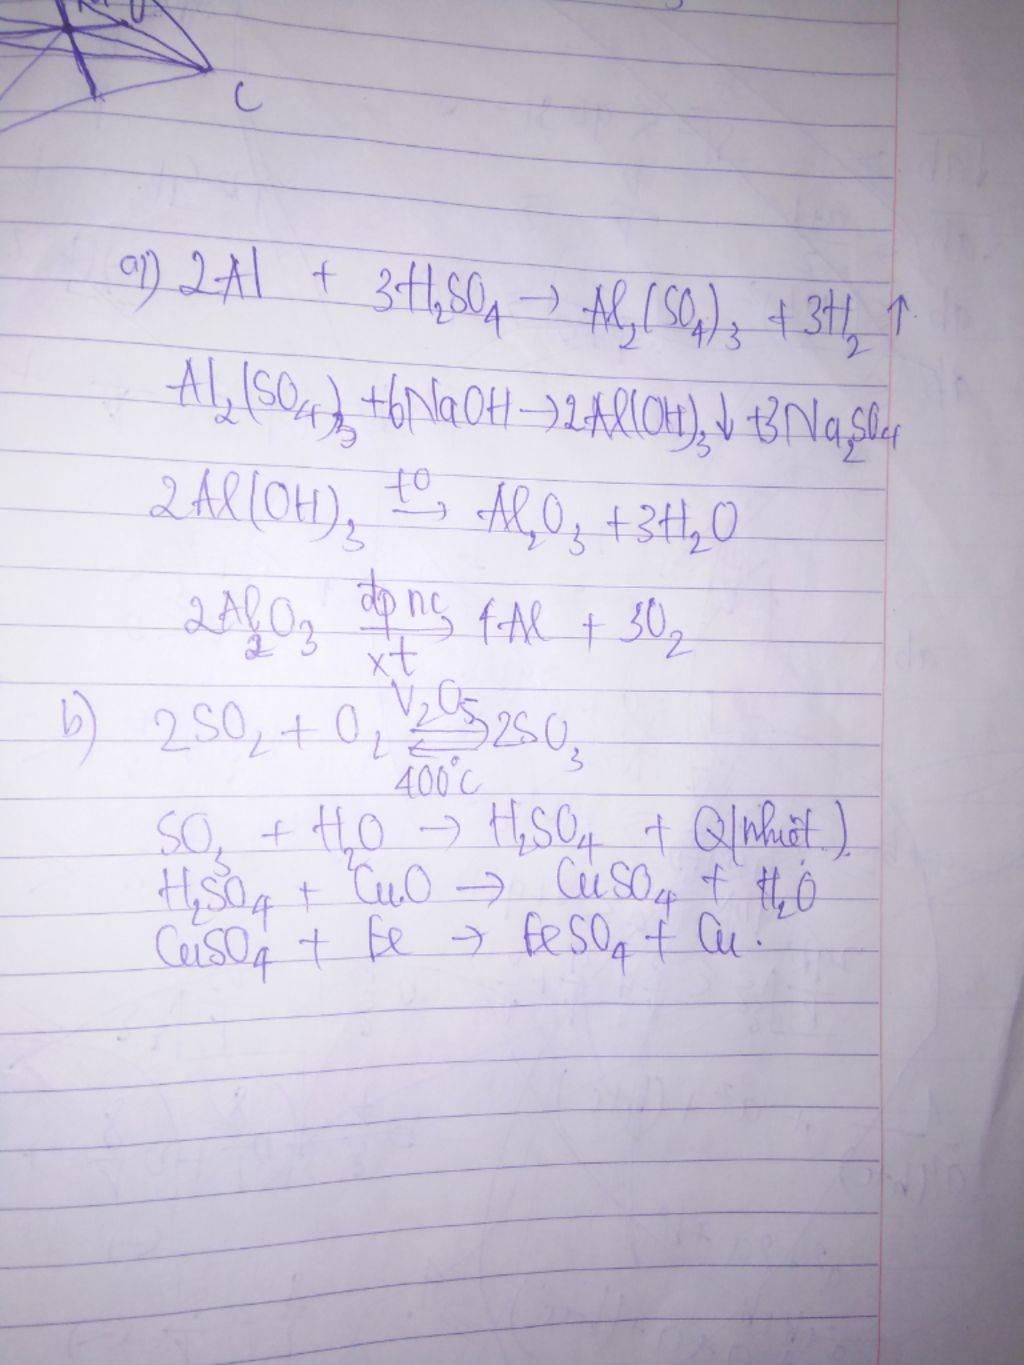 C
a) 2Al + 3H₂SO₄ → Al₂(SO₄)₃ + 3H₂ ↑
Al₂(SO₄)₃ + 6NaOH → 2Al(OH)₃ ↓ + 3Na₂SO₄
2Al(OH)₃ t⁰→ Al₂O₃ + 3H₂O
2Al₂O₃ đpnc→ xt 4Al + 3O₂
b) 2SO₂ + O₂ V₂O₅ ⇌ 400°C 2SO₃
SO₃ + H₂O → H₂SO₄ + Q(nhiệt).
H₂SO₄ + CuO → CuSO₄ + H₂O
CuSO₄ + Fe → FeSO₄ + Cu.